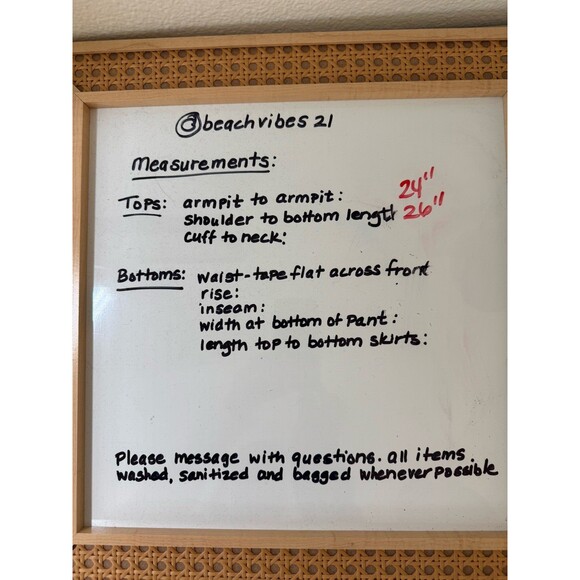 @beachvibes 21
Measurements:
Tops: armpit to armpit: 24"
shoulder to bottom length 26"
cuff to neck:
Bottoms: waist-tape flat across front
rise:
inseam:
width at bottom of pant:
length top to bottom skirts:
Please message with questions. all items
washed, sanitized and bagged whenever possible